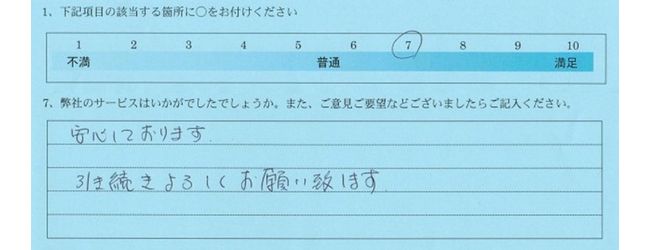 1、下記項目の該当する箇所に○をお付けください
1 2 3 4 5 6 7 8 9 10
不満 普通 満足
7、弊社のサービスはいかがでしたでしょうか。また、ご意見ご要望などございましたらご記入ください。
安心しております.
引き続きよろしくお願い致します.